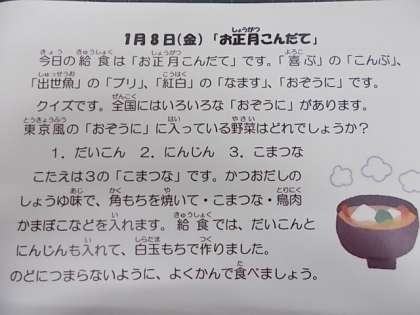 1月8日(金)「お正月こんだて」
今日の給食は「お正月こんだて」です。「喜ぶ」の「こんぶ」、
「出世魚」の「ブリ」、「紅白」の「なます」、「おぞうに」です。
クイズです。全国にはいろいろな「おぞうに」があります。
東京風の「おぞうに」に入っている野菜はどれでしょうか?
1.だいこん 2.にんじん 3.こまつな
こたえは3の「こまつな」です。かつおだしの
しょうゆ味で、角もちを焼いて・こまつな・鳥肉
かまぼこなどを入れます。給食では、だいこんと
にんじんも入れて、白玉もちで作りました。
のどにつまらないように、よくかんで食べましょう。